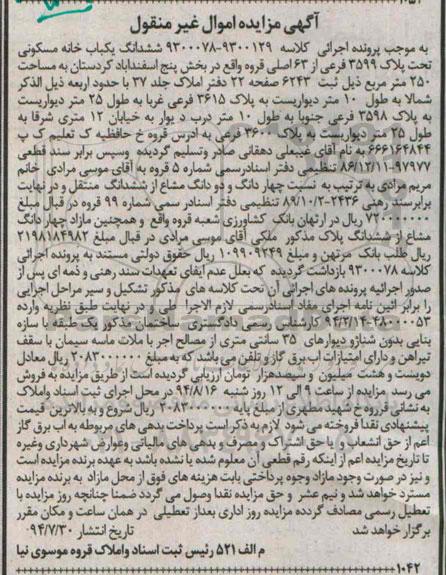 آگهی مزایده اموال غیر منقول
به موجب پرونده اجرائی کلاسه ۹۳۰۰۱۲۹-۹۳۰۰۰۷۸ ششدانگ یکباب خانه مسکونی
تحت پلاک ۳۵۹۹ فرعی از ۶۳ اصلی قروه واقع در بخش پنج اسفنداباد کردستان به مساحت
۲۵۰ متر مربع ذیل ثبت ۶۲۴۳ صفحه ۲۲ دفتر املاک جلد ۳۷ با حدود اربعه ذیل الذکر
شمالا به طول ۱۰ متر دیواریست به پلاک ۳۶۱۵ فرعی غربا به طول ۲۵ متر دیواریست
به پلاک ۳۵۹۸ فرعی جنوبا به طول ۱۰ متر درب و دیوار به خیابان ۱۲ متری شرقا به
طول ۲۵ متر دیواریست به پلاک ۳۶۰۰ فرعی به ادرس قروه خ حافظیه ک تعلیم ک پ
۶۶۶۱۶۴۸۴۴ به نام آقای غیبعلی دهقانی صادر وتسلیم گردیده وسپس برابر سند قطعی
۹۷۹۷۷-۸۶/۱۲/۱۱ تنظیمی دفتر اسنادرسمی شماره ۵ قروه به آقای موسی مرادی خانم
مریم مرادی به ترتیب به نسبت چهار دانگ و دو دانگ مشاع از ششدانگ منتقل و در نهایت
برابرسند رهنی ۲۴۳۶-۸۹/۱۰/۲ تنظیمی دفتر اسناد رسمی شماره ۹۹ قروه در قبال مبلغ
۷۲۰۰۰۰۰۰۰ ریال در ارتهان بانک کشاورزی شعبه قروه واقع و همچنین مازاد چهار دانگ
مشاع از ششدانگ پلاک مذکور ملکی آقای موسی مرادی در قبال مبلغ ۲۱۹۸۱۸۴۹۸۲
ریال طلب بانک مرتهن و مبلغ ۱۰۹۹۰۹۲۴۹ ریال حقوق دولتی مستند به پرونده اجرائی
کلاسه ۹۳۰۰۰۷۸ بازداشت گردیده که بعلل عدم ایفای تعهدات سند رهنی و ذمه ای پس از
صدور اجرائیه پرونده های اجرائی آن تحت کلاسه های مذکور تشکیل و سیر مراحل اجرایی
را برابر ائین نامه اجرای مفاد اسنادرسمی لازم الاجرا طی و در نهایت طبق نظریه وارده
کارشناس رسمی دادگستری ساختمان مذکور یک طبقه با سازه
بنایی بدون شناژ و دیوارهای ۳۵ سانتی متری از مصالح اجر با ملات ماسه سیمان با سقف
تیراهن و دارای امتیازات اب برق گاز و تلفن می باشد که به مبلغ ۲۰۸۳۰۰۰۰۰۰ ریال معادل
دویست و هشت میلیون و سیصدهزار تومان ارزیابی گردیده است از طریق مزایده به فروش
می رسد مزایده از ساعت ۹ الی ۱۲ روز شنبه ۹۴/۸/۱۶ در محل اجرای ثبت اسناد واملاک
به نشانی قرروه خ شهید مطهری از مبلغ پایه ۲۰۸۳۰۰۰۰۰۰ ریال شروع و به بالاترین قیمت
پیشنهادی نقدا فروخته می شود لازم به ذکر است پرداخت بدهی های مربوطه به اب برق گاز
اعم از حق انشعاب و یا حق اشتراک و مصرف و بدهی های مالیاتی وعوارض شهرداری وغیره
تا تاریخ مزایده اعم از اینکه رقم قطعی آن معلوم شده یا نشده باشد به عهده برنده مزایده است
و نیز در صورت وجود مازاد وجوه پرداختی بابت هزینه های فوق از محل مازاد به برنده مزایده
مسترد خواهد شد و نیم عشر و حق مزایده نقدا وصول می گردد ضمنا چنانچه روز مزایده با
تعطیل رسمی مصادف گردده مزایده روز اداری بعداز تعطیلی در همان ساعت و مکان مقرر
برگزار خواهد شد تاریخ انتشار ۹۴/۷/۳۰
م الف ۵۲۱ رئیس ثبت اسناد واملاک قروه موسوی نیا
۱۰۴۲